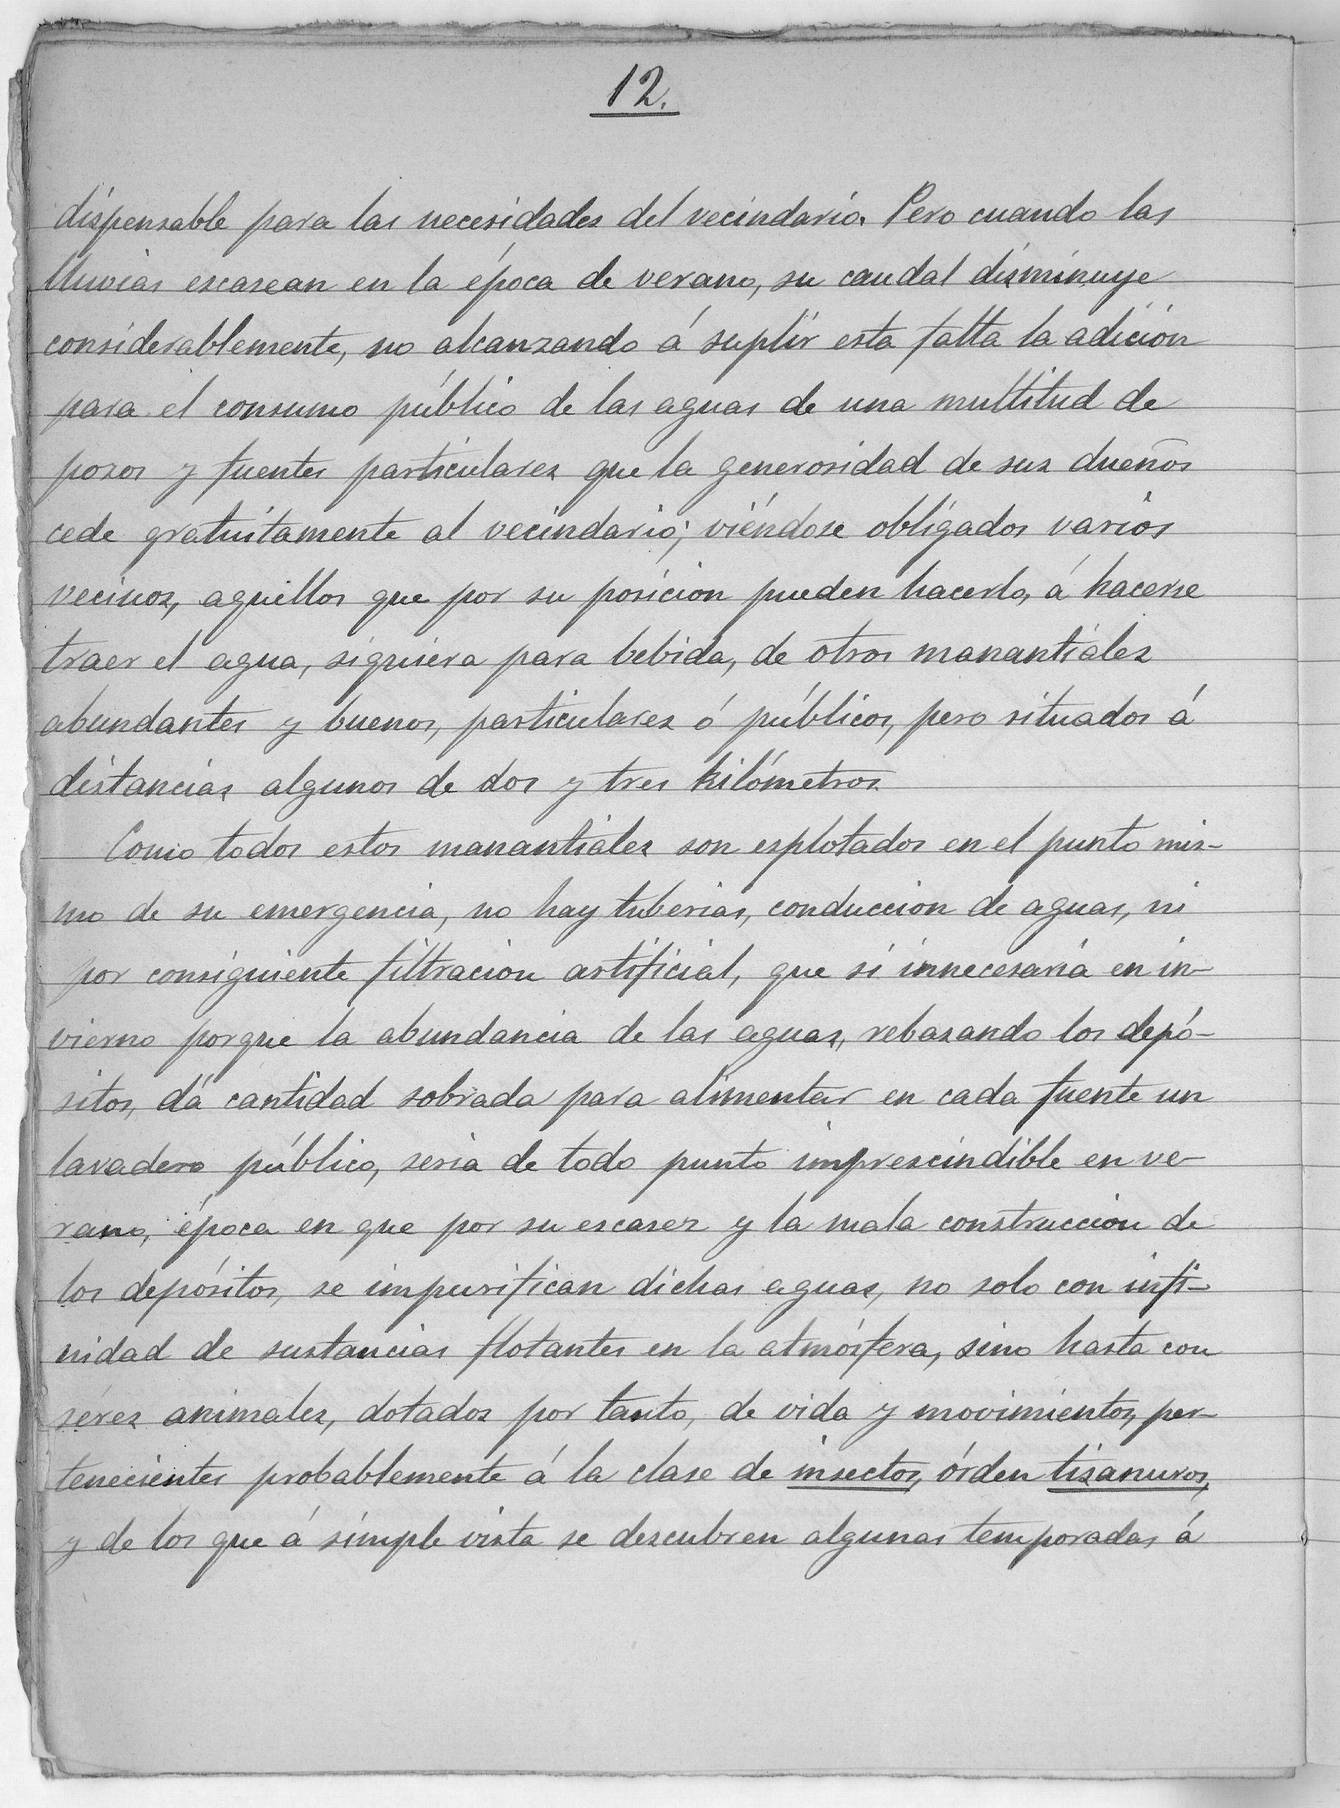 12.
dispensable para las necesidades del vecindario. Pero cuando las
lluvias escasean en la época de verano, su caudal disminuye
considerablemente, no alcanzando á suplir esta falta la adición
para el consumo público de las aguas de una multitud de
pozos y fuentes particulares que la generosidad de sus dueños
cede gratuitamente al vecindario; viéndose obligados varios
vecinos, aquellos que por su posición pueden hacerlo, á hacerse
traer el agua, siquiera para bebida, de otros manantiales
abundantes y buenos, particulares ó públicos, pero situados á
distancias algunos de dos y tres kilómetros.
Como todos estos manantiales son esplotados en el punto mis-
mo de su emergencia, no hay tuberias, conduccion de aguas, ni
por consiguiente filtracion artificial, que si innecesaria en in-
vierno porque la abundancia de las aguas, rebasando los depó-
sitos, dá cantidad sobrada para alimentar en cada fuente un
lavadero público, seria de todo punto imprescindible en ve-
rano, época en que por su escasez y la mala construccion de
los depósitos, se impurifican dichas aguas, no solo con infi-
nidad de sustancias flotantes en la atmósfera, sino hasta con
séres animales, dotados por tanto, de vida y movimientos, per-
tenecientes probablemente á la clase de insectos, órden tisanuros,
y de los que á simple vista se descubren algunas temporadas á